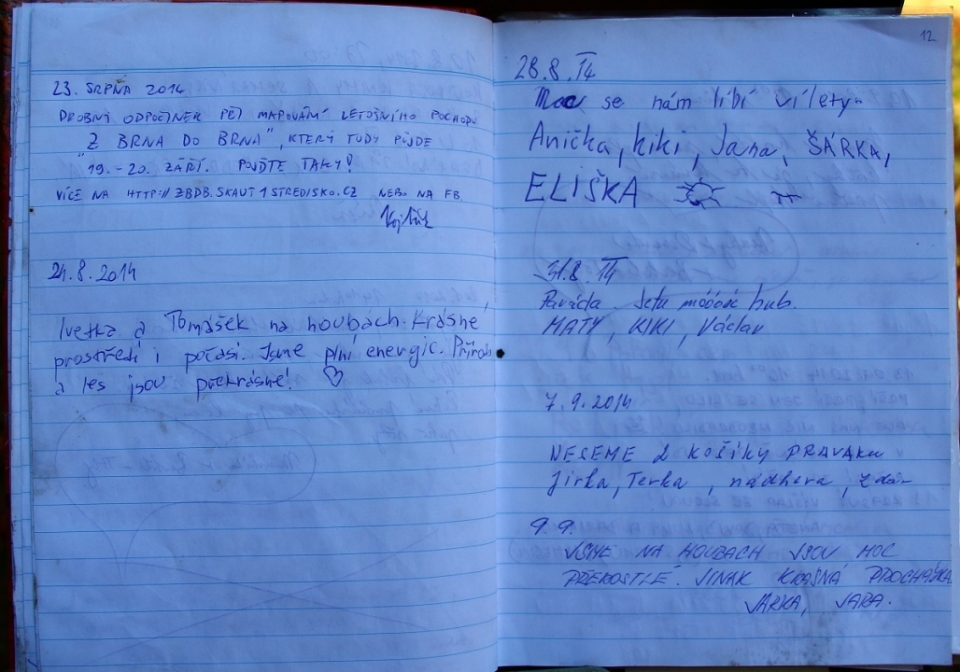 23. SRPNA 2014
DROBNÝ ODPOČINEK PŘI MAPOVÁNÍ LETOŠNÍHO POCHODU
„Z BRNA DO BRNA", KTERÝ TUDY PŮJDE
19.-20. ZÁŘÍ. POJĎTE TAKY!
VÍCE NA HTTP://ZBDB.SKAUT1STREDISKO.CZ NEBO NA FB.
24.8.2014
Ivetka a Tomášek na houbách. Krásné
prostředí i počasí. Jsme plní energie. Příroda
a les jsou překrásné! ♡
12
28.8.14
Moc se nám líbí výlety-
Anička, kiki, Jana, ŠÁRKA,
ELIŠKA
31.8.14
Paráda. Jsou móóóc hub.
MATY, KIKI, Václav
7.9.2014
NESEME 2 KOŠÍKY PRAVÁKU
Jirka, Terka, nádhera,
9.9.
JSME NA HOUBACH JSOU MOC
PŘEROSTLÉ. JINAK KRÁSNÁ PROCHÁZKA
JARKA, JARA.